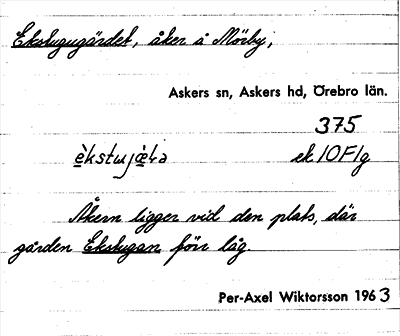 Ekstugugärdet, åker å Mörby,
Askers sn, Askers hd, Örebro län.
375
ek 10F1g
Åkern ligger vid den plats, där
gården Ekstugan förr låg.
Per-Axel Wiktorsson 1963